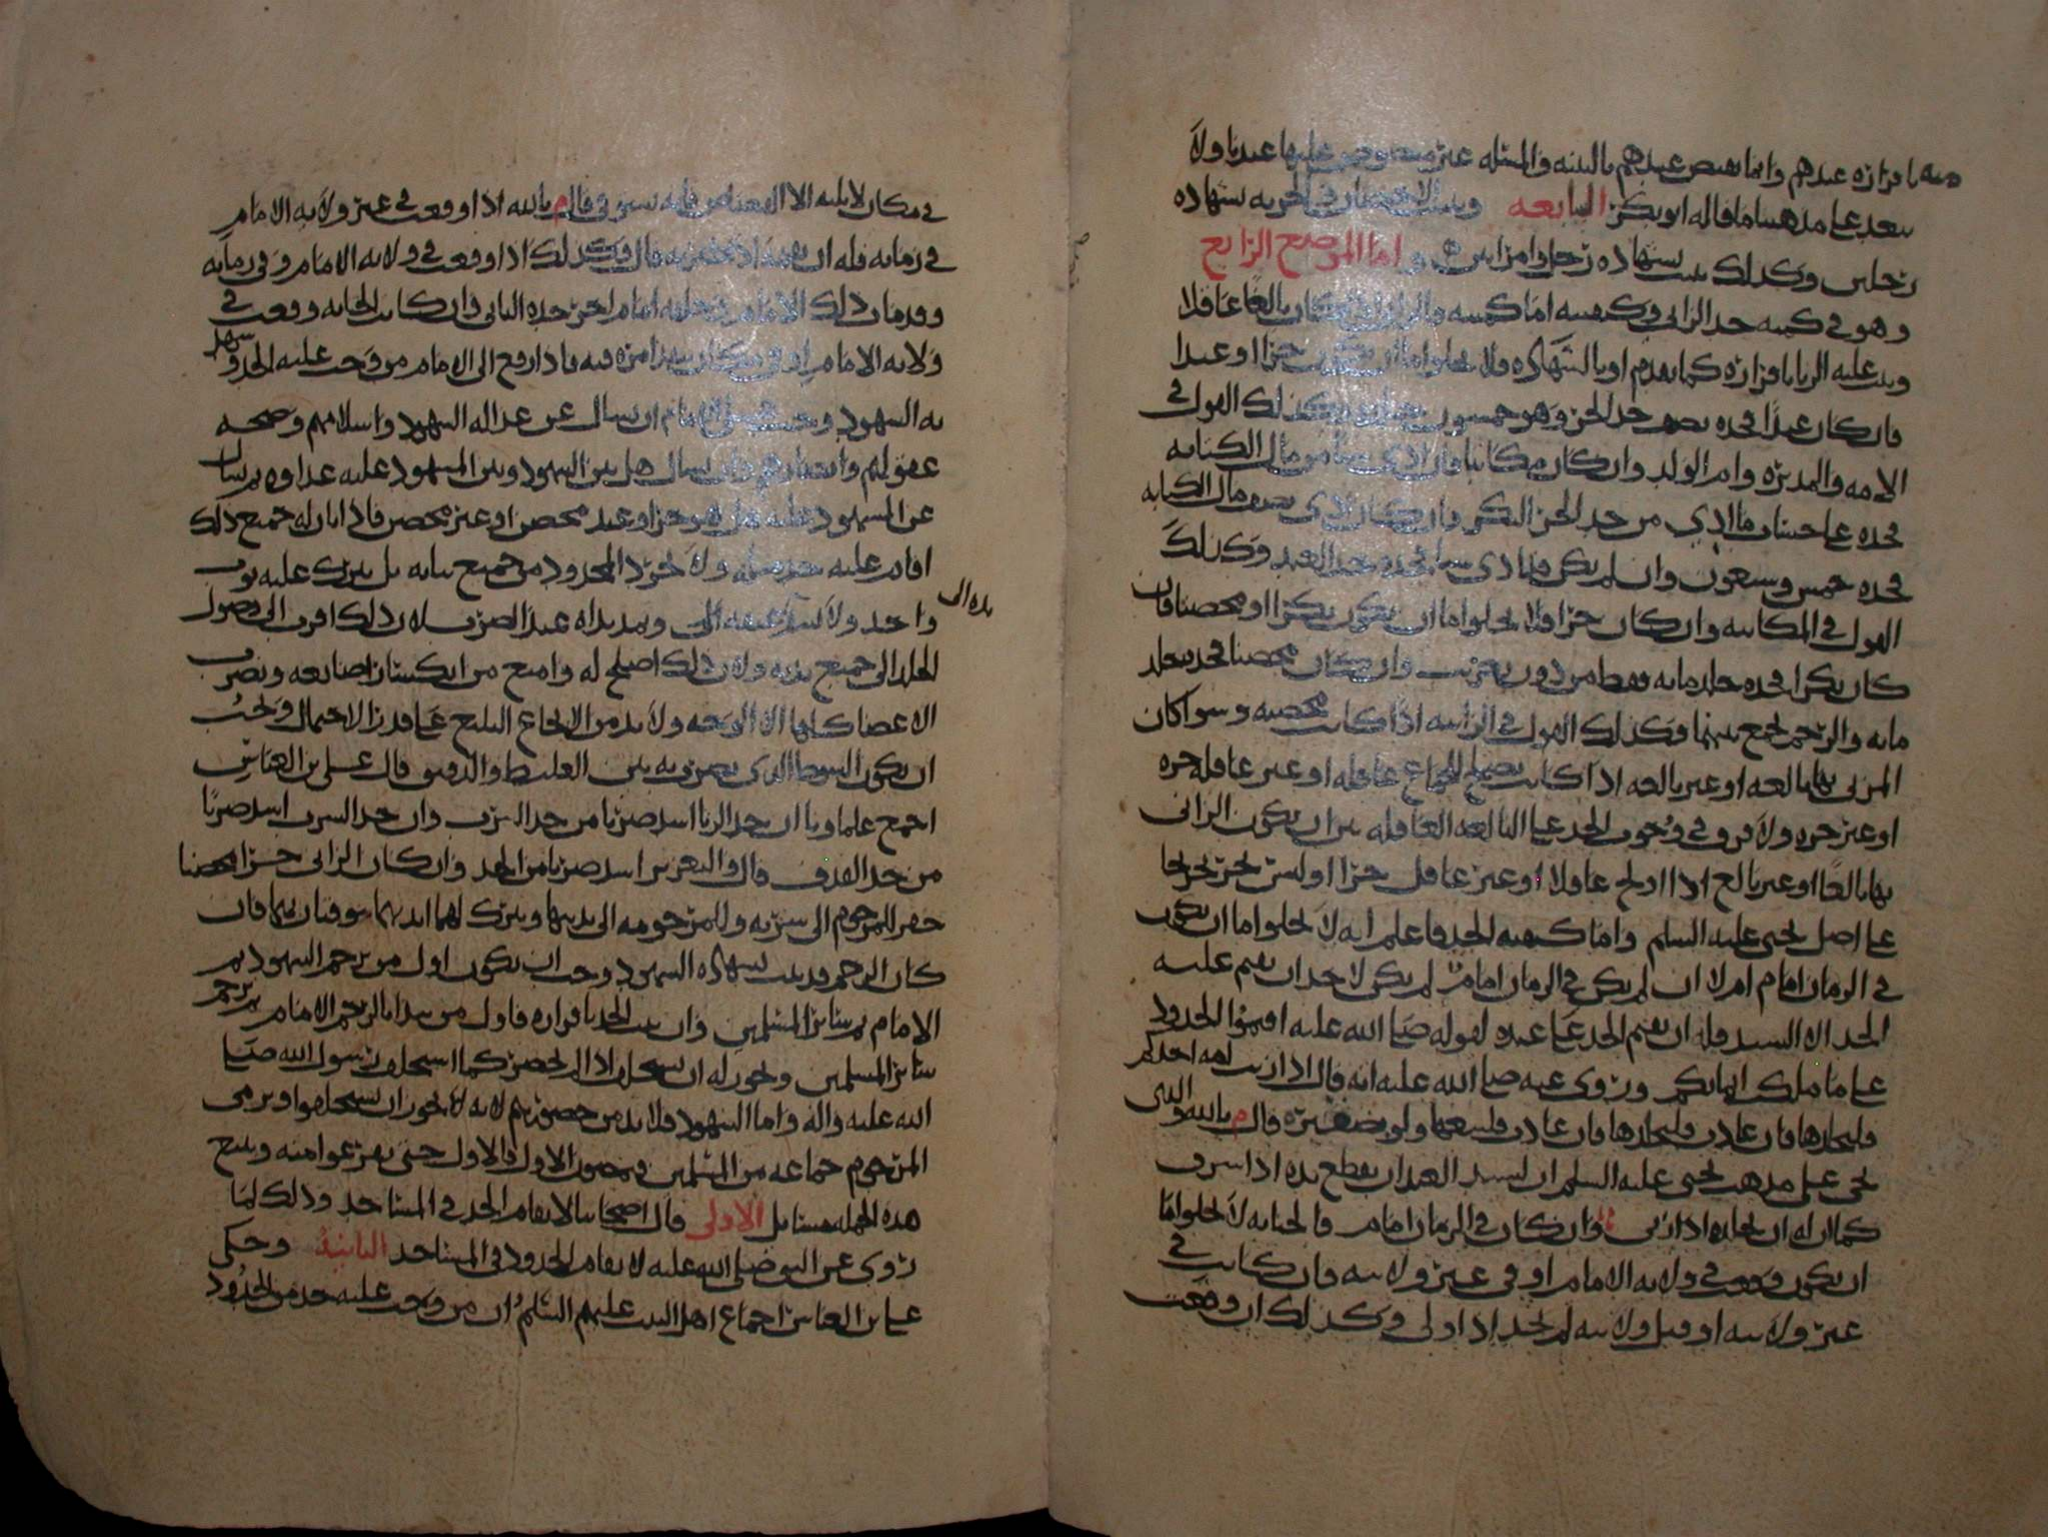 منه باقراره عندهم وانما نقص عندهم بالبينه والمسئله غير منصوص عليها عندنا ولا
يبعد على مذهبنا ما قاله ابو بكر السابعه ويثبت الاحصان في الحريه بشهاده
رجلين وكذلك يثبت بشهاده رجل وامراتين واما الموضع الرابع
وهو في كميه حد الزاني وكيفيته اما كميته فالزاني اذا كان بالغا عاقلا
وثبت عليه الزنا باقراره كما تقدم او بالشهاده فلا يخلو اما ان يكون حرا او عبدا
فان كان عبدا فحده نصف حد الحر وهو خمسون جلده وكذلك القول في
الامه والمدبره وام الولد وان كان مكاتبا فان ادى شيئا من مال الكتابه
فحده على حساب ما ادى من حد الحر البكر وان كان ادى نصف مال الكتابه
فحده خمس وسبعون وان لم يكن قد ادى شيئا فحده حد العبد وكذلك
القول في المكاتبه وان كان حرا فلا يخلو اما ان يكون بكرا او محصنا فان
كان بكرا فحده جلد مايه فقط من دون تغريب وان كان محصنا فحده جلد
مايه والرجم يجمع بينهما وكذلك القول في الزانيه اذا كانت محصنه وسوا كان
المزني بها بالغه او غير بالغه اذا كانت تصلح للجماع عاقله او غير عاقله حره
او غير حره ولا فرق في وجوب الحد على البالغه العاقله بين ان يكون الزاني
بها بالغا او غير بالغ اذا اولج عاقلا او غير عاقل حرا او ليس بحر تخريجا
على اصل يحيى عليه السلم واما كيفيه الحد فاعلم انه لا يخلو اما ان يكون
في الزمان امام ام لا ان لم يكن في الزمان امام لم يكن لاحد ان يقيم عليه
الحد الا السيد فله ان يقيم الحد على عبده لقوله صلى الله عليه اقيموا الحدود
على ما ملكت ايمانكم وروى عنه صلى الله عليه انه قال اذا زنت امه احدكم
فليجلدها فان عادت فليجلدها فان عادت فليبعها ولو بضفيره قال م بالله والذي
يجي على مذهب يحيى عليه السلم ان لسيد العبد ان يقطع يده اذا سرق
كما ان له ان يجلده اذا زنى وان كان في الزمان امام فالجنايه لا يخلو اما
ان تكون وقعت في ولايه الامام او في غير ولايته فان كانت في
غير ولايته او قبل ولايته لم يحد اذا ولي وكذلك ان وقعت
في مكان لا يليه الا
قال م بالله اذا وقعت في غير ولايه الامام
في زمانه فله ان
قال وكذلك اذا وقعت في ولايه الامام وفي زمانه
وقد مات ذلك الامام
امام اخر حده الثاني وان كانت الجنايه وقعت في
ولايه الامام او في مكان ينفذ امره فيه فاذا رفع الى الامام من وجب عليه الحد وشهد
به الشهود وجب على الامام ان يسال عن عداله الشهود واسلامهم وصحه
عقولهم وابصارهم وان يسال هل بين الشهود وبين المشهود عليه عداوه ثم يسال
عن المشهود عليه هل هو حر او عبد محصن او غير محصن فاذا بان له جميع ذلك
اقام عليه حد مثله ولا يجرد المحدود من جميع ثيابه بل يترك عليه ثوب
واحد ولا
وتمد يداه عند الضرب لان ذلك اقرب الى وصول
الجلد الى جميع بدنه ولان ذلك اصلح له وامنع من انكسار اصابعه ويضرب
الاعضا كلها الا الوجه ولا بد من الايجاع البليغ على قدر الاحتمال ويجب
ان يكون السوط الذي يضرب به بين الغليظ والدقيق قال علي بن العباس
اجمع علماونا ان حد الزنا اشد ضربا من حد الشرب وان حد الشرب اشد ضربا
من حد القذف قال والتعزير اشد ضربا من الحد وان كان الزاني حرا محصنا
حفر للمرجوم الى سرته وللمرجومه الى ثدييها ويترك لهما ايديهما يتوقيان بهما فان
كان الرجم قد ثبت بشهاده الشهود وجب ان يكون اول من يرجم الشهود ثم
الامام ثم ساير المسلمين وان ثبت الحد باقراره فاول من يبدا بالرجم الامام ثم يرجم
ساير المسلمين ويجوز له ان يستخلف اذا لم يحضر كما استخلف رسول الله صلى
الله عليه واله واما الشهود فلا بد من حضورهم لانه لا يجوز ان يستخلفوا ويرمى
المرجوم جماعه من المسلمين يصفون الاول فالاول حتى يفرغوا منه ويتبع
هذه الجمله مسايل الاولى قال اصحابنا لا يقام الحد في المساجد وذلك لما
روى عن النبي صلى الله عليه لا يقام الحدود في المساجد الثانيه وحكى
علي بن العباس اجماع اهل البيت عليهم السلم ان من وجب عليه حد من الحدود